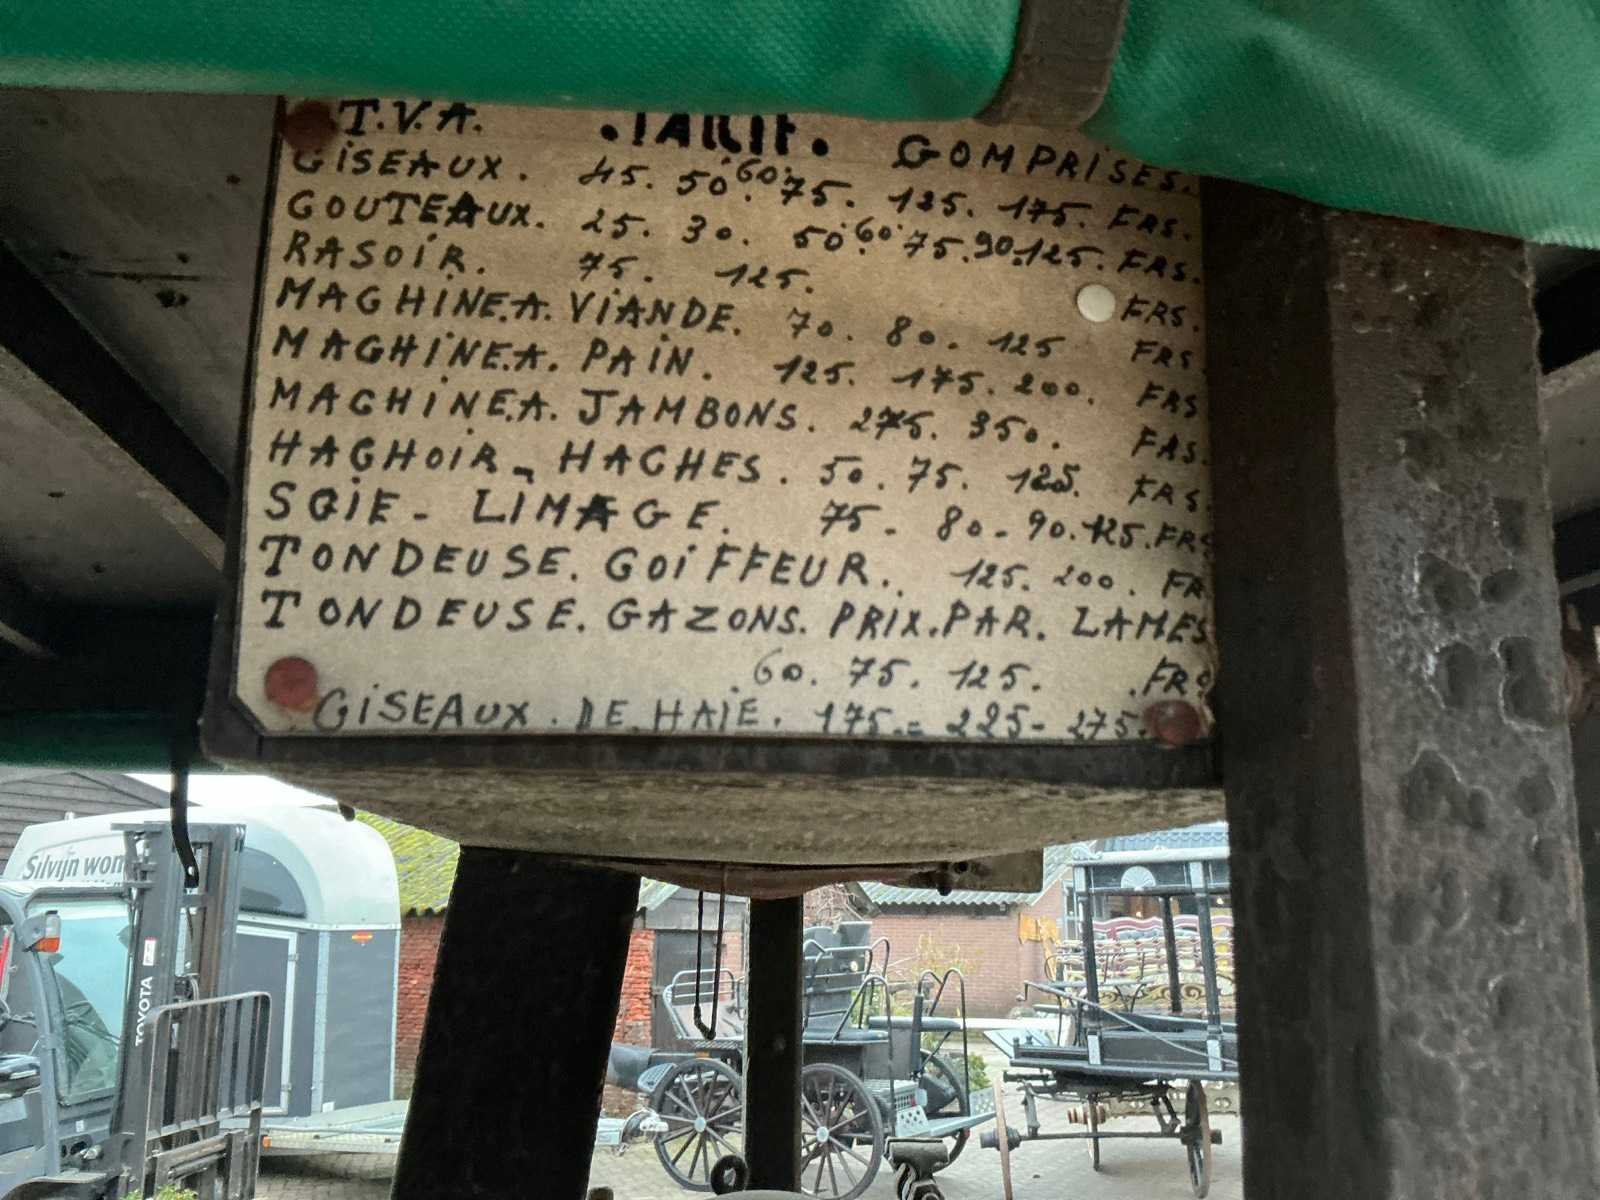 T.V.A. .TARIF. COMPRISES.
CISEAUX. 45. 50. 60. 75. 125. 175. FRS.
COUTEAUX. 25. 30. 50. 60. 75. 90. 125. FRS.
RASOIR. 75. 125. FRS.
MACHINE.A. VIANDE. 70. 80. 125 FRS
MACHINE.A. PAIN. 125. 175. 200. FRS
MACHINE.A. JAMBONS. 275. 350. FRS.
HACHOIR - HACHES. 50. 75. 125. FRS.
SCIE - LIMAGE. 75 - 80 - 90. 125. FRS
TONDEUSE. COIFFEUR. 125. 200. FR
TONDEUSE. GAZONS. PRIX. PAR. LAMES
60. 75. 125. .FRS
CISEAUX. DE. HAIE. 175.= 225- 275.
Silvijn won
TOYOTA